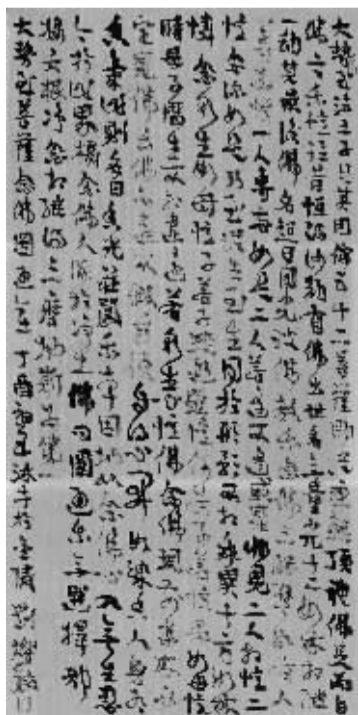 大勢至法王子與其同倫五十二菩薩即從座起頂禮佛足而白
佛言我憶往昔恒河沙劫有佛出世名無量光十二如來相繼
一劫其最後佛名超日月光彼佛教我念佛三昧譬如有人
一專為憶一人專忘如是二人若逢不逢或見非見二人相憶二
憶念深如是乃至從生至生同於形影不相乖異十方如來
憐念眾生如母憶子若子逃逝雖憶何為子若憶母如母憶
時母子歷生不相違遠若眾生心憶佛念佛現前當來必
定見佛去佛不遠不假方便自得心開如染香人身有
香氣此則名曰香光莊嚴我本因地以念佛心入無生忍
今於此界攝念佛人歸於淨土佛問圓通我無選擇都
攝六根淨念相繼得三摩地斯為第一
大勢至菩薩念佛圓通章丁酉